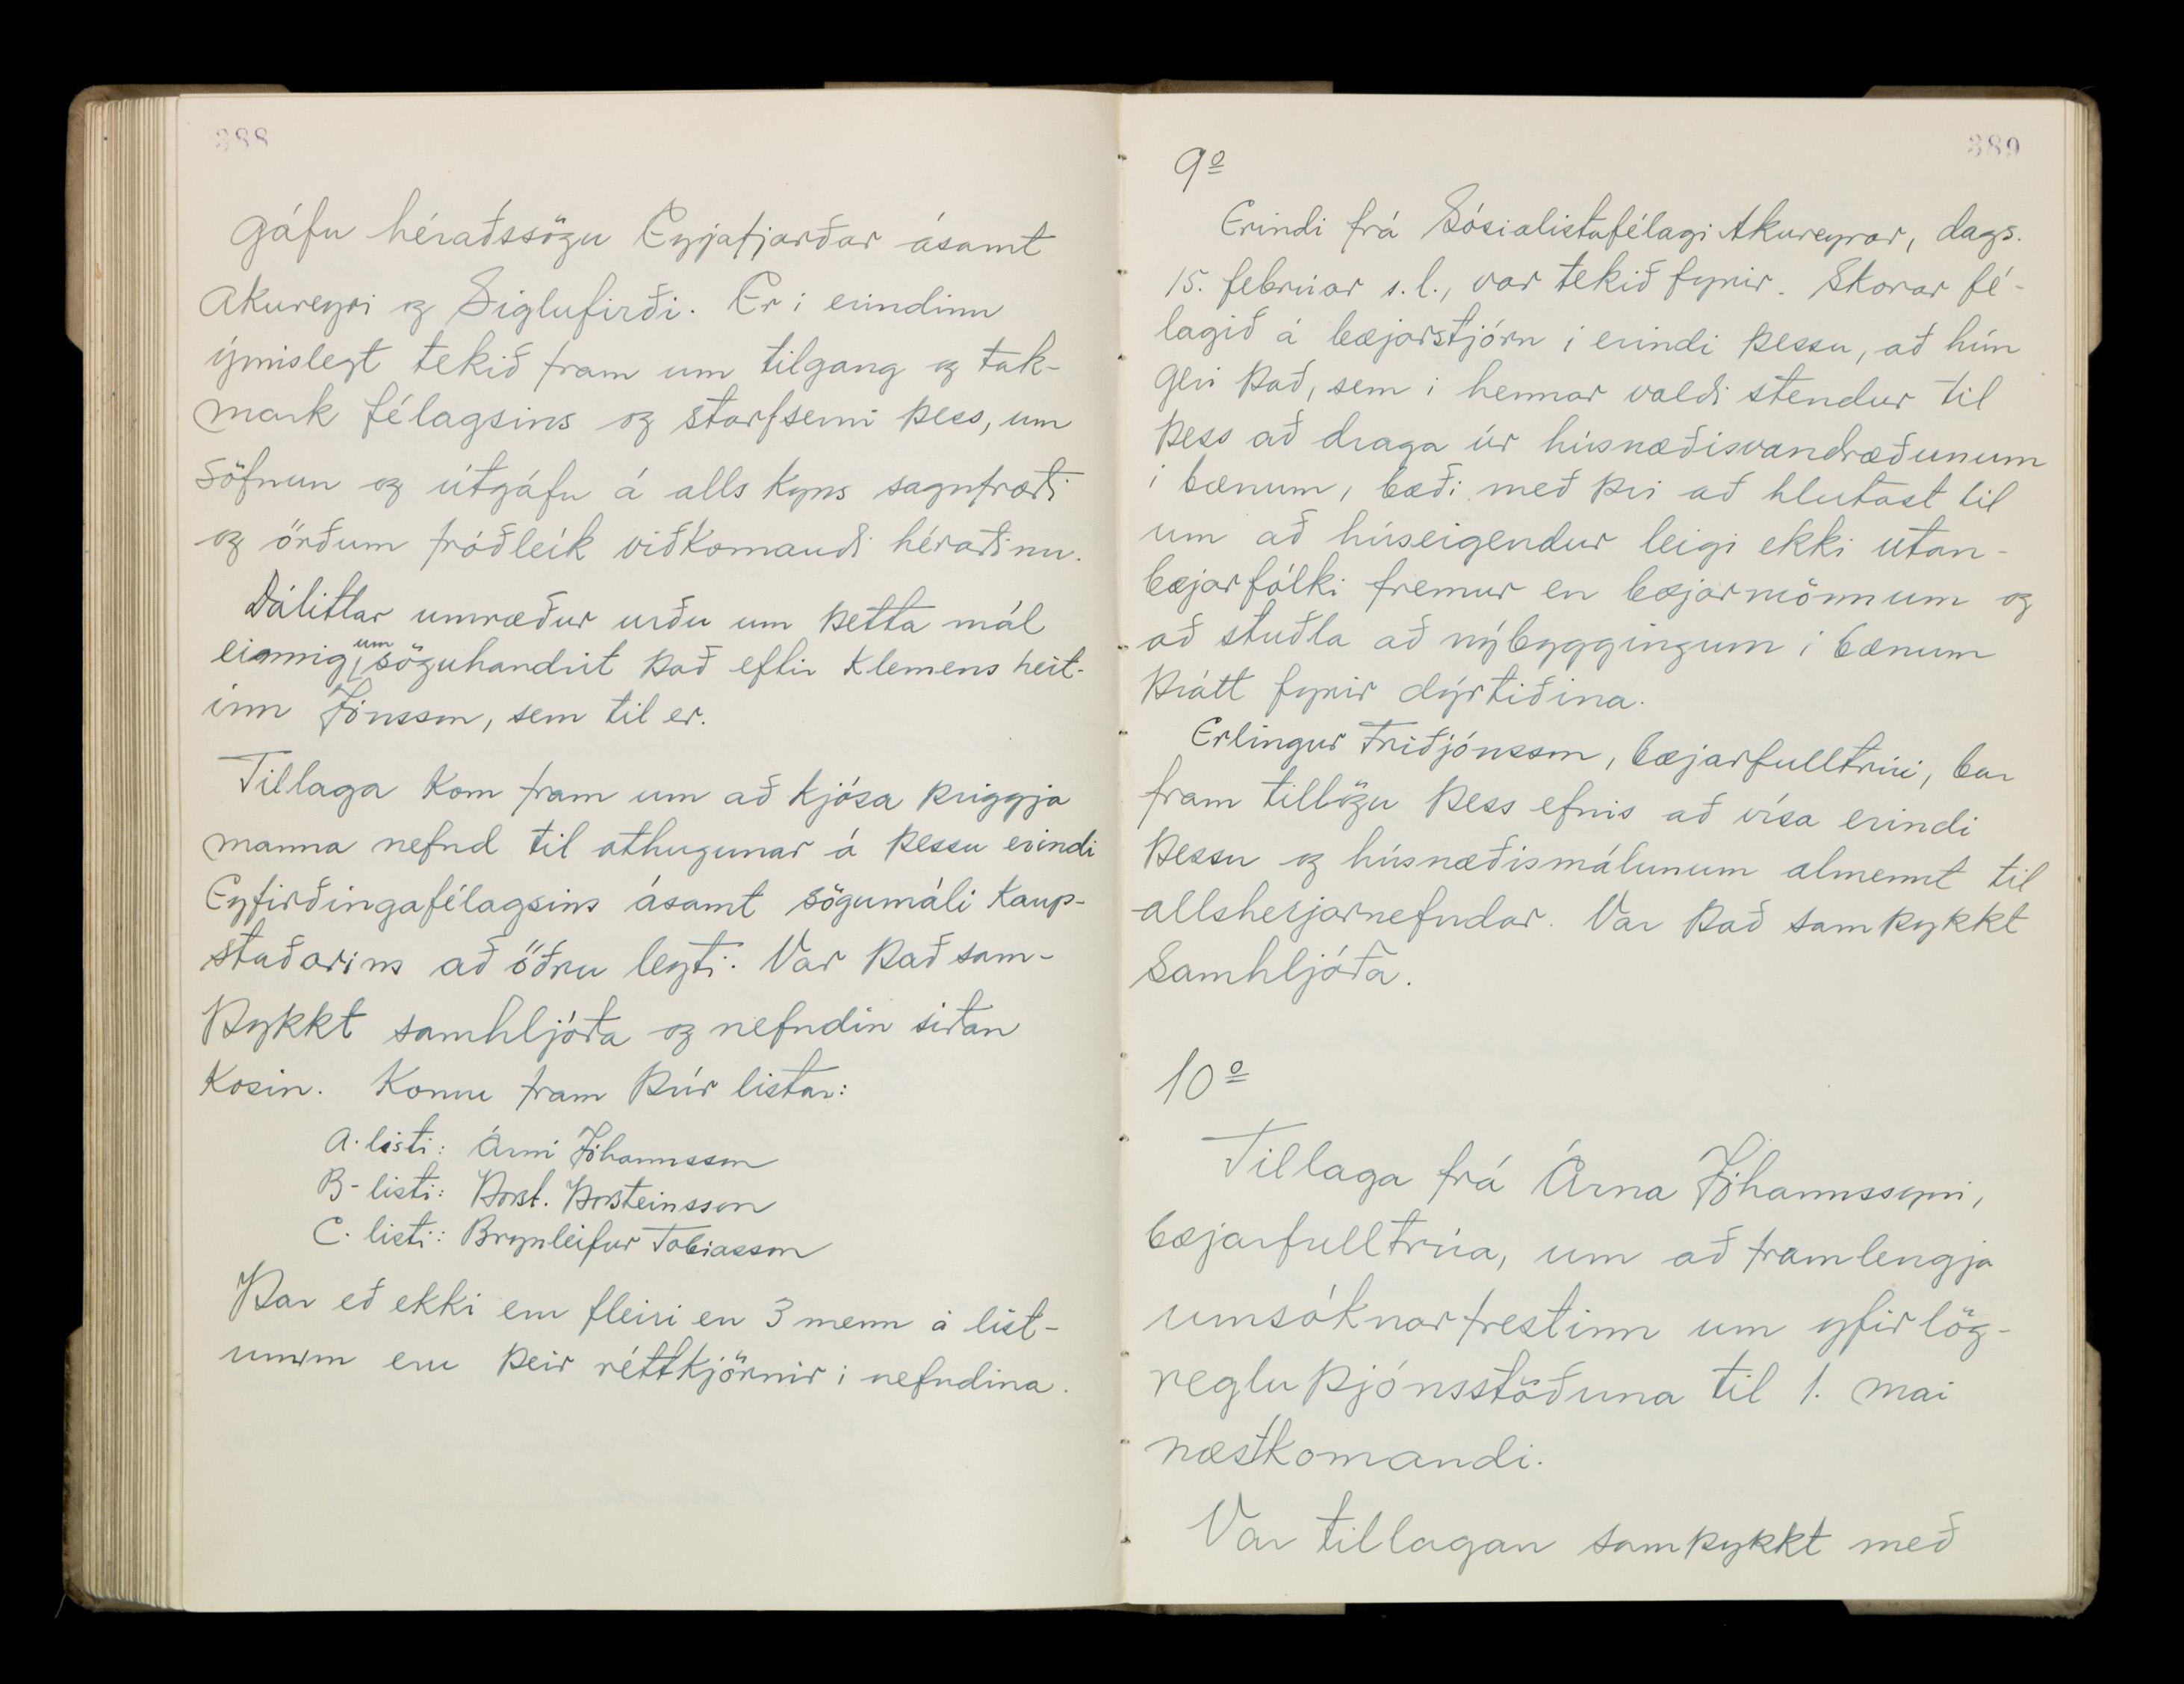 388
gáfu héraðssögu Eyjafjarðar ásamt
Akureyri og Siglufirði. Er í erindinu
ýmislegt tekið fram um tilgang og tak-
mark félagsins og starfsemi þess, um
söfnun og útgáfu á alls kyns sagnfræði
og örðum fróðleik viðkomandi héraðinu.
Dálitlar umræður urðu um þetta mál
einnig, um söguhandrit það eftir Klemens heit-
inn Jónsson, sem til er.
Tillaga kom fram um að kjósa þriggja
manna nefnd til athugunar á þessu erindi
Eyfirðingafélagsins ásamt sögumáli kaup-
staðarins að öðru leyti. Var það sam-
þykkt samhljóða og nefndin síðan
kosin. Komu fram þrír listar:
A-listi: Árni Jóhannsson
B-listi: Þorst. Þorsteinsson
C-listi: Brynleifur Tobiasson
Þar eð ekki eru fleiri en 3 menn á list-
unum eru þeir réttkjörnir í nefndina.
389
9º
Erindi frá Sósialistafélagi Akureyrar, dags.
15. febrúar s.l., var tekið fyrir. Skorar fé-
lagið á bæjarstjórn í erindi þessu, að hún
geri það, sem í hennar valdi stendur til
þess að draga úr húsnæðisvandræðunum
í bænum, bæði með því að hlutast til
um að húseigendur leigi ekki utan-
bæjarfólki fremur en bæjarmönnum og
að stuðla að nýbyggingum í bænum
þrátt fyrir dýrtíðina.
Erlingur Friðjónsson, bæjarfulltrúi, bar
fram tillögu þess efnis að vísa erindi
þessu og húsnæðismálunum almennt til
allsherjarnefndar. Var það samþykkt
samhljóða.
10º
Tillaga frá Árna Jóhannssyni,
bæjarfulltrúa, um að framlengja
umsóknarfrestinn um yfirlög-
regluþjónsstöðuna til 1. mai
næstkomandi.
Var tillagan samþykkt með